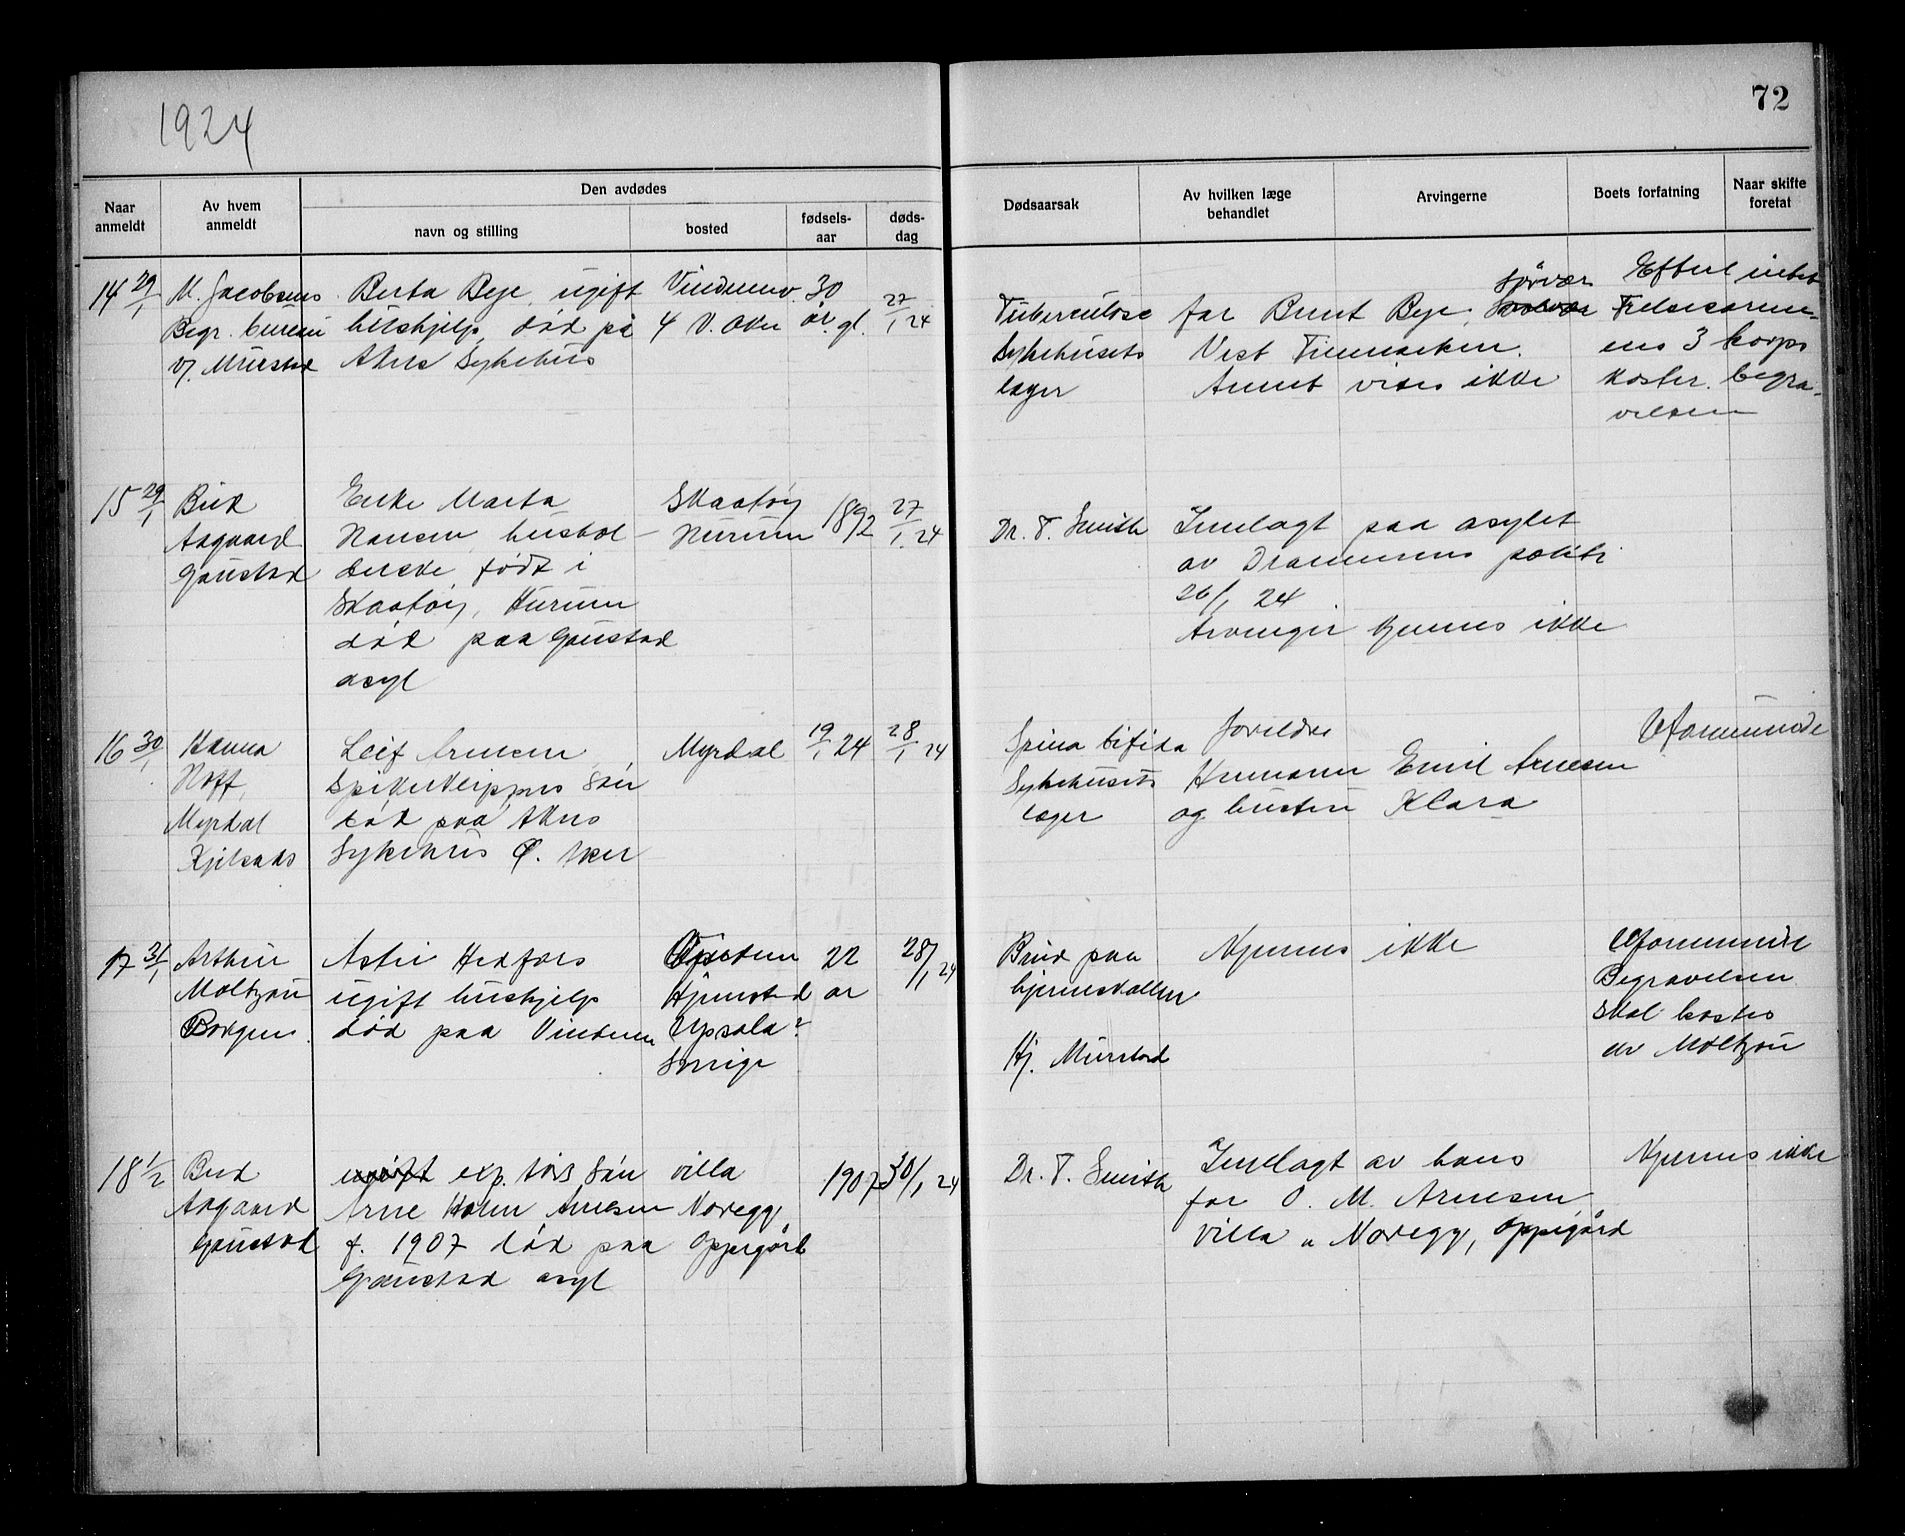 1924
72
Naar anmeldt
Av hvem anmeldt
Den avdødes
navn og stilling
bosted
fødsels-aar
døds-dag
Dødsaarsak
Av hvilken læge behandlet
Arvingerne
Boets forfatning
Naar skifte foretat
14 29/1
M. Jacobsens
Begr. bureau
v/. Mürstad
Berta Bye, ugift
hushjelp, död på
Akers Sykehus
Vinderenv.
4 V. Aker
30
år. gl.
27/1 24
Tuberculose
Sykehusets
læger
far Bernt Bye, Sörvær
Vest Finmarken.
Annet vites ikke
Efterl intet
Frelsesarme-
ens 3 korps
koster begra-
velsen
15 29/1
Bud
Aagaard
Gaustad
Enke Marta
Hansen, hushol-
derske, født i
Skaatöy, Hurum
död paa Gaustad
asyl
Skaatöy
Hurum
1892
27/1 24
Dr. T. Smith
Innlagt paa asylet
av Drammens politi
26/1 24
Arvinger kjennes ikke
16 30/1
Hanna
Hoff,
Myrdal
Kjelsaas
Leif Arnesen,
Spikerklippers sön
död paa Akers
Sykehus Ö. Aker
Myrdal
19/1 24
28/1 24
Spina bifida
Sykehusets
læger
foreldre
Hermann Emil Arnesen
og hustru Klara
Uformuende
17 31/1
Arthur
Moltzau
Borgen
Astri Hedfors
ugift hushjelp
död paa Vinderen
Hjemsted
Upsala?
Sverige
22
år
28/1 24
Brud paa
hjerneskallen
Hj. Mürstad
Kjennes ikke
Uformuende
Begravelsen
skal kostes
av Moltzau
18 1/2
Bud
Aagaard
Gaustad
ugift exp. törs sön
Arne Holm Arnesen
f. 1907 död paa
Gaustad asyl
villa
Noregg
Oppegård
1907
30/1 24
Dr. T. Smith
Innlagt av hans
far O. M. Arnesen
villa „ Noregg, Oppegård
Kjennes ikke